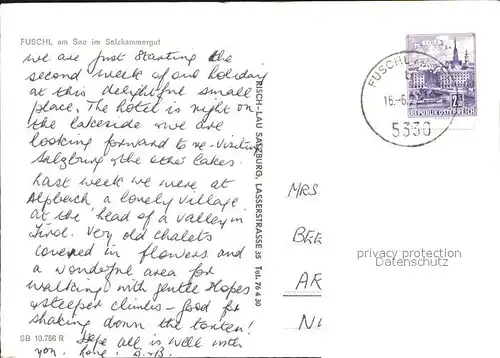 FUSCHL am See im Salzkammergut
we are just starting the
second week of our holiday
at this delightful small
place. The hotel is right on
the lakeside & we are
looking forward to re-visiting
Salzburg & the other lakes.
Last week we were at
Alpbach, a lovely village
at the head of a valley in
Tirol. Very old chalets
covered in flowers and
a wonderful area for
walking with gentle slopes
& steeper climbs - good for
shaking down the torten!
Hope all is well with
you. Love,
SB 10.766 R
RISCH-LAU SALZBURG, LASSERSTRASSE 35 Tel. 76 4 30
FUSCHL
16.-6.
5330
REPUBLIK ÖSTERREICH
MRS
BEE
AR
N
privacy protection
Datenschutz